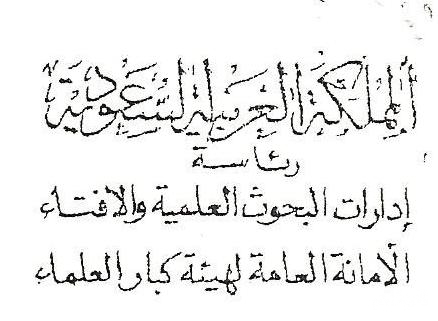 المملكة العربية السعودية
رئاسة
إدارات البحوث العلمية والافتاء
الأمانة العامة لهيئة كبار العلماء